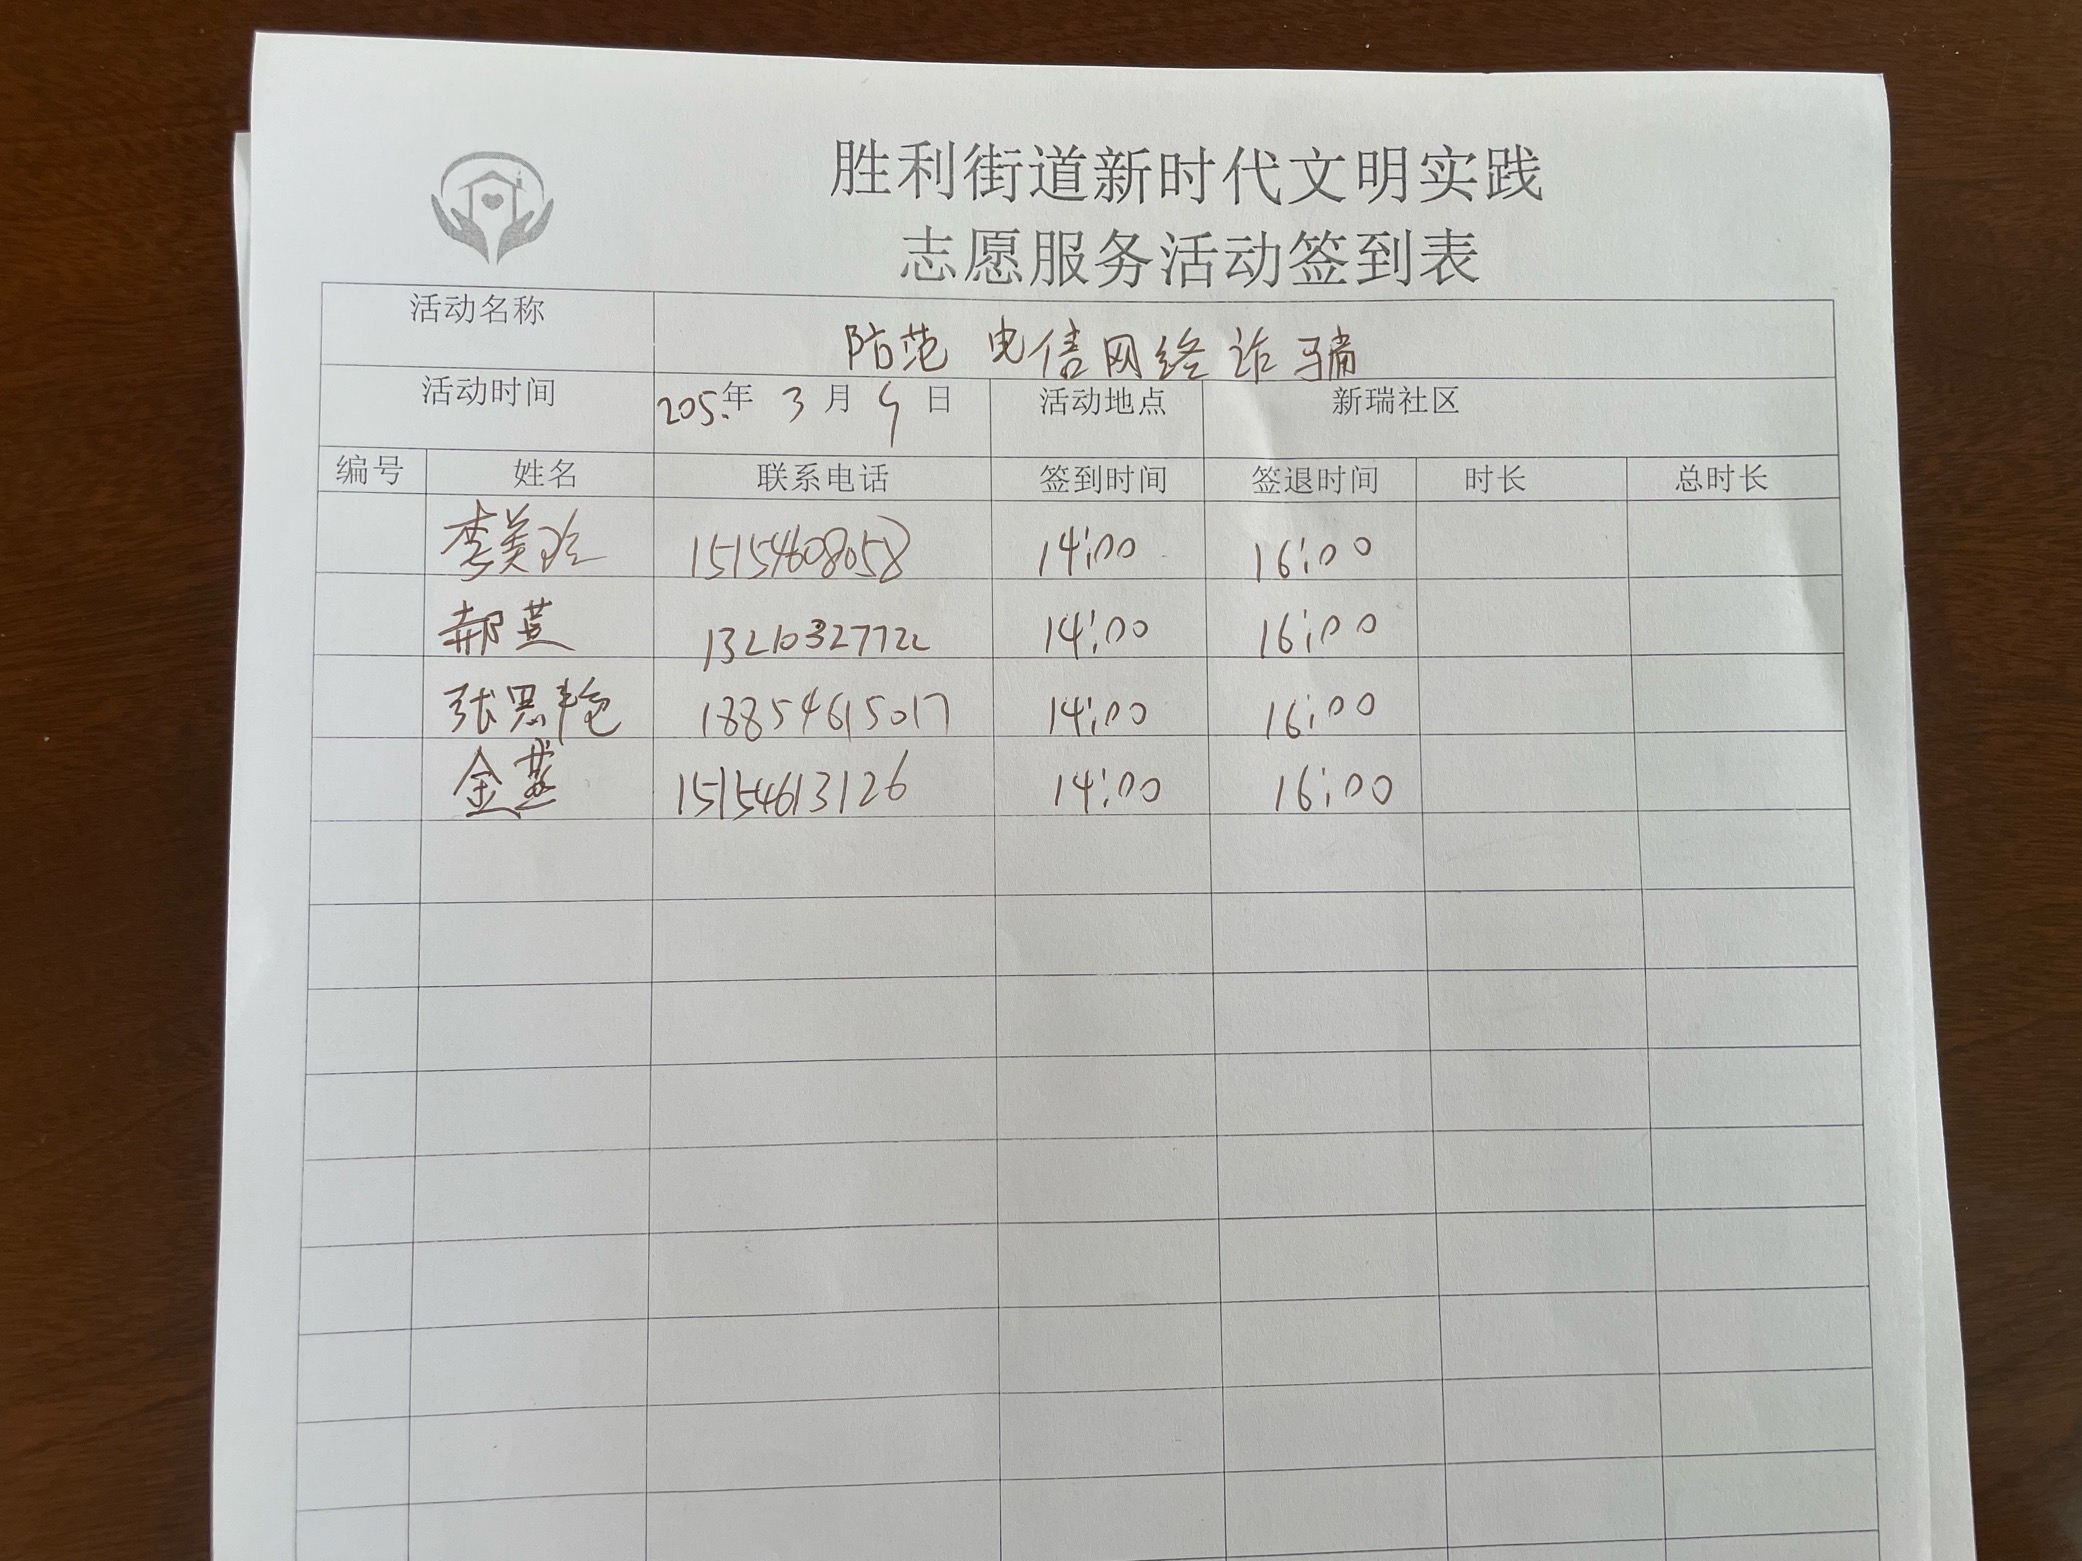 胜利街道新时代文明实践
志愿服务活动签到表
活动名称 防范电信网络诈骗
活动时间 205.年 3 月 9 日 活动地点 新瑞社区
编号 姓名 联系电话 签到时间 签退时间 时长 总时长
李美玲 15154608058 14:00 16:00
郝 13210327722 14:00 16:00
张思艳 18854615017 14:00 16:00
金燕 15154613126 14:00 16:00